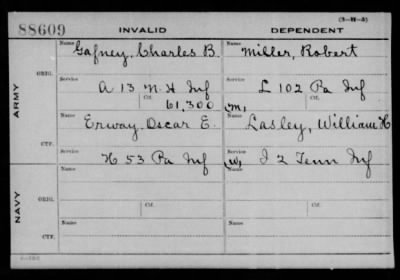 (3-H-3)
88609 INVALID DEPENDENT
Name Gafney, Charles B. Name Miller, Robert
ORIG.
Service Service
A 13 N.H Inf L 102 Pa Inf
Ctf. 61,300 Ctf. (M)
ARMY
Name Erway, Oscar E. Name Lasley, William H
CTF.
Service Service
H 53 Pa Inf (W) I 2 Tenn Inf
Name Name
ORIG.
Ctf. Ctf.
NAVY
Name Name
CTF.